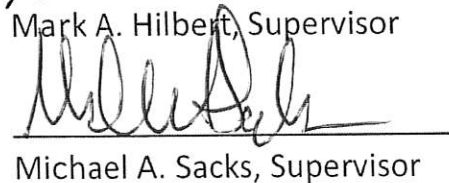 Mark A. Hilbert, Supervisor
Michael A. Sacks, Supervisor